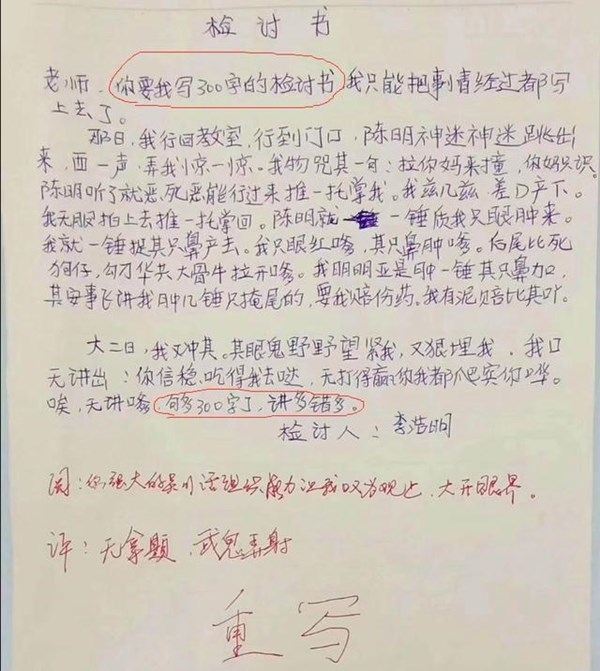 检讨书
老师：你要我写300字的检讨书 我只能把事情经过都写
上去了。
那日，我行回教室，行到门口，陈明神迷神迷 跳出
来，西一声，弄我惊一惊。我物咒其一句：拉你妈来撞，你妈识识。
陈明听了就恶，死恶能行过来推一托掌我。我兹几兹，差D产下。
我无服拍上去推一托掌回。陈明就 一锤质我只眼肿来。
我就一锤捉其只鼻产去。我只眼红嗲，其只鼻肿嗲。后尾比死
狗仔，勾刀华共大骨牛拉开嗲。我明明亚是肿一锤其只鼻加，
其安事飞讲我肿几锤只掩尾的，要我赔份药。我有泥赔比其吖。
大二日，我又冲其。其眼鬼野野望紧我，又狠埋我，我口
无讲出：你信稳吃得我去哒，无打得赢你我都爬实你哗。
唉，无讲嗲，有多300字了，讲多错多。
检讨人：李浩明
阅：你强大的吴川话组织能力让我叹为观止，大开眼界。
评：无拿题，武鬼弄射
重写